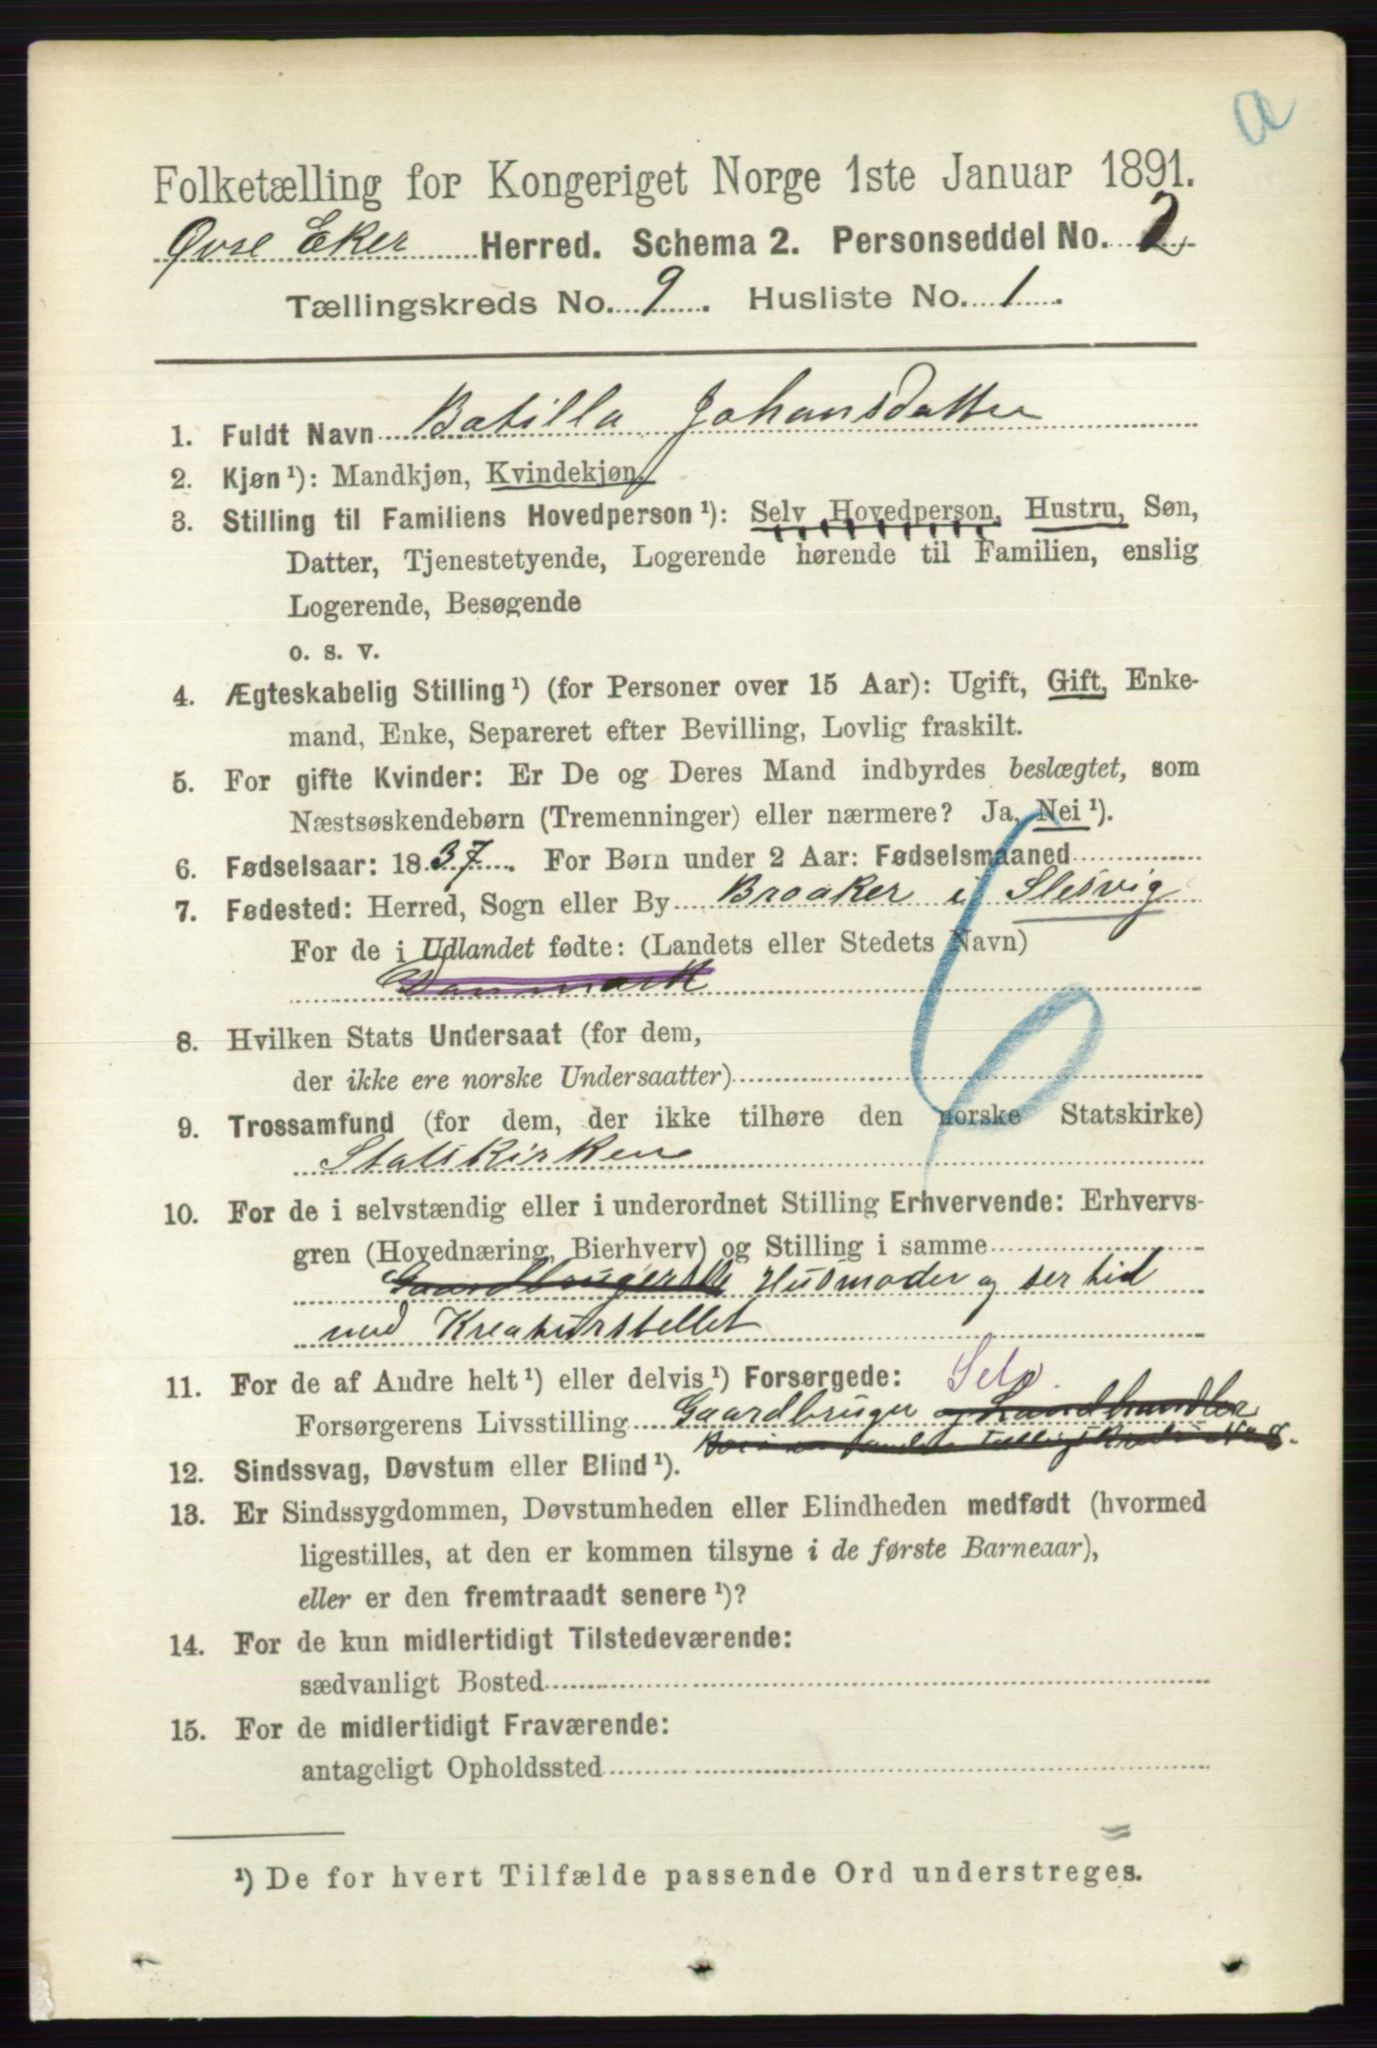 a
Folketælling for Kongeriget Norge 1ste Januar 1891.
Øvre Eker Herred. Schema 2. Personseddel No. 2
Tællingskreds No. 9. Husliste No. 1.
1. Fuldt Navn Batilla Johansdatter
2. Kjøn ¹): Mandkjøn, Kvindekjøn,
3. Stilling til Familiens Hovedperson ¹): Selv Hovedperson, Hustru, Søn,
Datter, Tjenestetyende, Logerende hørende til Familien, enslig
Logerende, Besøgende
o. s. v.
4. Ægteskabelig Stilling ¹) (for Personer over 15 Aar): Ugift, Gift, Enke-
mand, Enke, Separeret efter Bevilling, Lovlig fraskilt.
5. For gifte Kvinder: Er De og Deres Mand indbyrdes beslægtet, som
Næstsøskendebørn (Tremenninger) eller nærmere? Ja, Nei ¹).
6. Fødselsaar: 1837. For Børn under 2 Aar: Fødselsmaaned
7. Fødested: Herred, Sogn eller By Broaker i Slesvig
For de i Udlandet fødte: (Landets eller Stedets Navn)
Danmark
8. Hvilken Stats Undersaat (for dem,
der ikke ere norske Undersaatter)
9. Trossamfund (for dem, der ikke tilhøre den norske Statskirke)
Statskirken
10. For de i selvstændig eller i underordnet Stilling Erhvervende: Erhvervs-
gren (Hovednæring, Bierhverv) og Stilling i samme
Gaardbrugerske Husmoder og ser til
med Kreaturstellet
11. For de af Andre helt ¹) eller delvis ¹) Forsørgede: Selv.
Forsørgerens Livsstilling Gaardbruger og Landhandler
12. Sindssvag, Døvstum eller Blind ¹).
13. Er Sindssygdommen, Døvstumheden eller Blindheden medfødt (hvormed
ligestilles, at den er kommen tilsyne i de første Barneaar),
eller er den fremtraadt senere ¹)?
14. For de kun midlertidigt Tilstedeværende:
sædvanligt Bosted
15. For de midlertidigt Fraværende:
antageligt Opholdssted
¹) De for hvert Tilfælde passende Ord understreges.